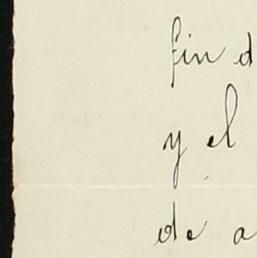 fin d
y el
de a